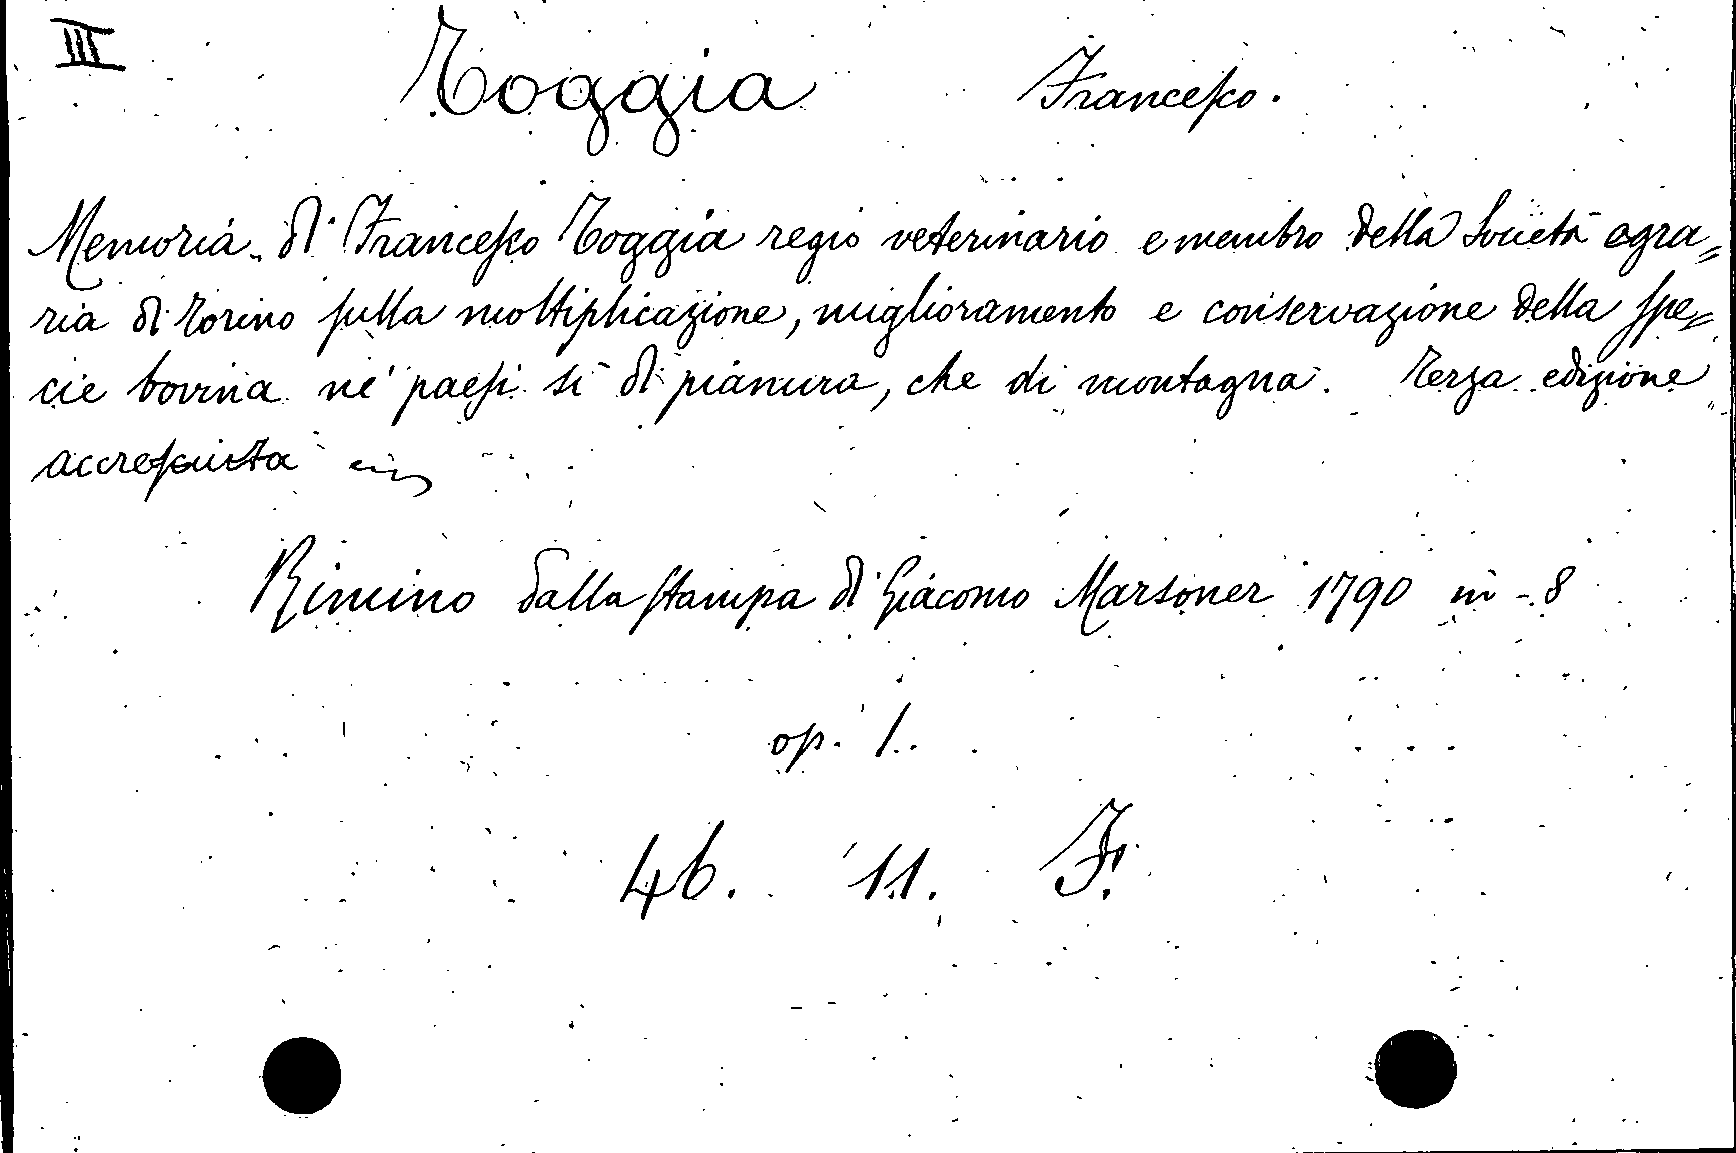 III
Toggia Francesco.
Memoria di Francesco Toggia regio veterinario e membro della Società agra=
ria di Torino sulla moltiplicazione, miglioramento e conservazione della spe=
cie bovina ne' paesi sì di pianura, che di montagna. Terza edizione
accresciuta
Rimino dalla stampa di Giacomo Marsoner 1790 in-8
op. 1.
46. 11. F.